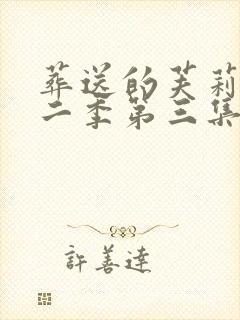 葬送的芙莉
二季第三集
許善達